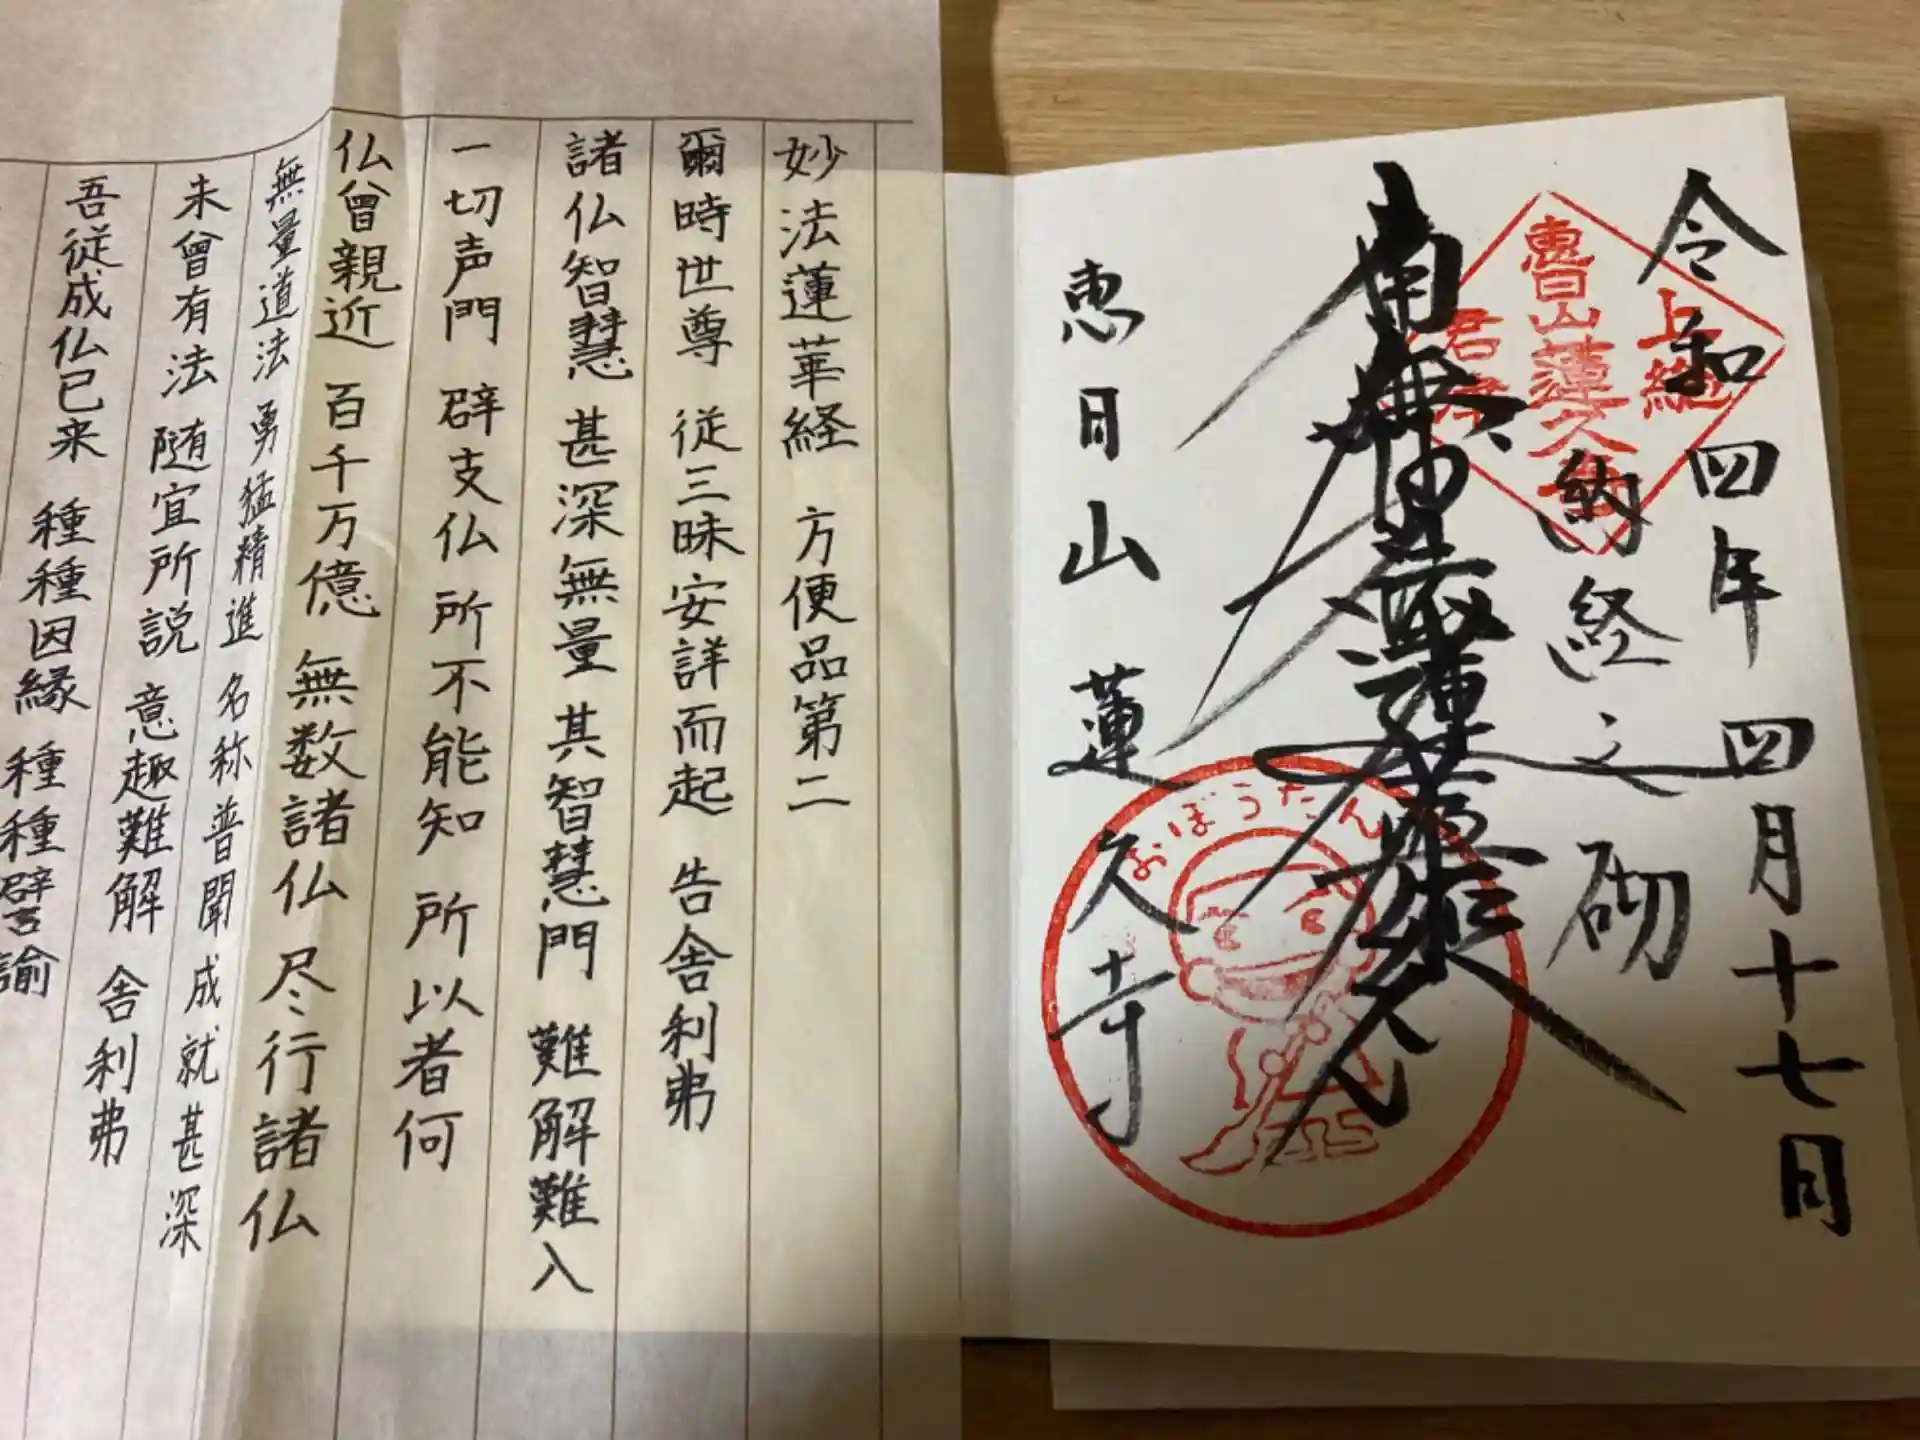 令和四年四月十七日
納経之砌
南無妙法蓮華経
恵日山 蓮久寺
上総
恵日山蓮久寺
おぼうたん
妙法蓮華経 方便品第二
爾時世尊 従三昧安詳而起 告舎利弗
諸仏智慧 甚深無量 其智慧門 難解難入
一切声門 辟支仏 所不能知 所以者何
仏曾親近 百千万億 無数諸仏 尽行諸仏
無量道法 勇猛精進 名称普聞 成就甚深
未曾有法 随宜所説 意趣難解 舎利弗
吾従成仏已来 種種因縁 種種譬諭